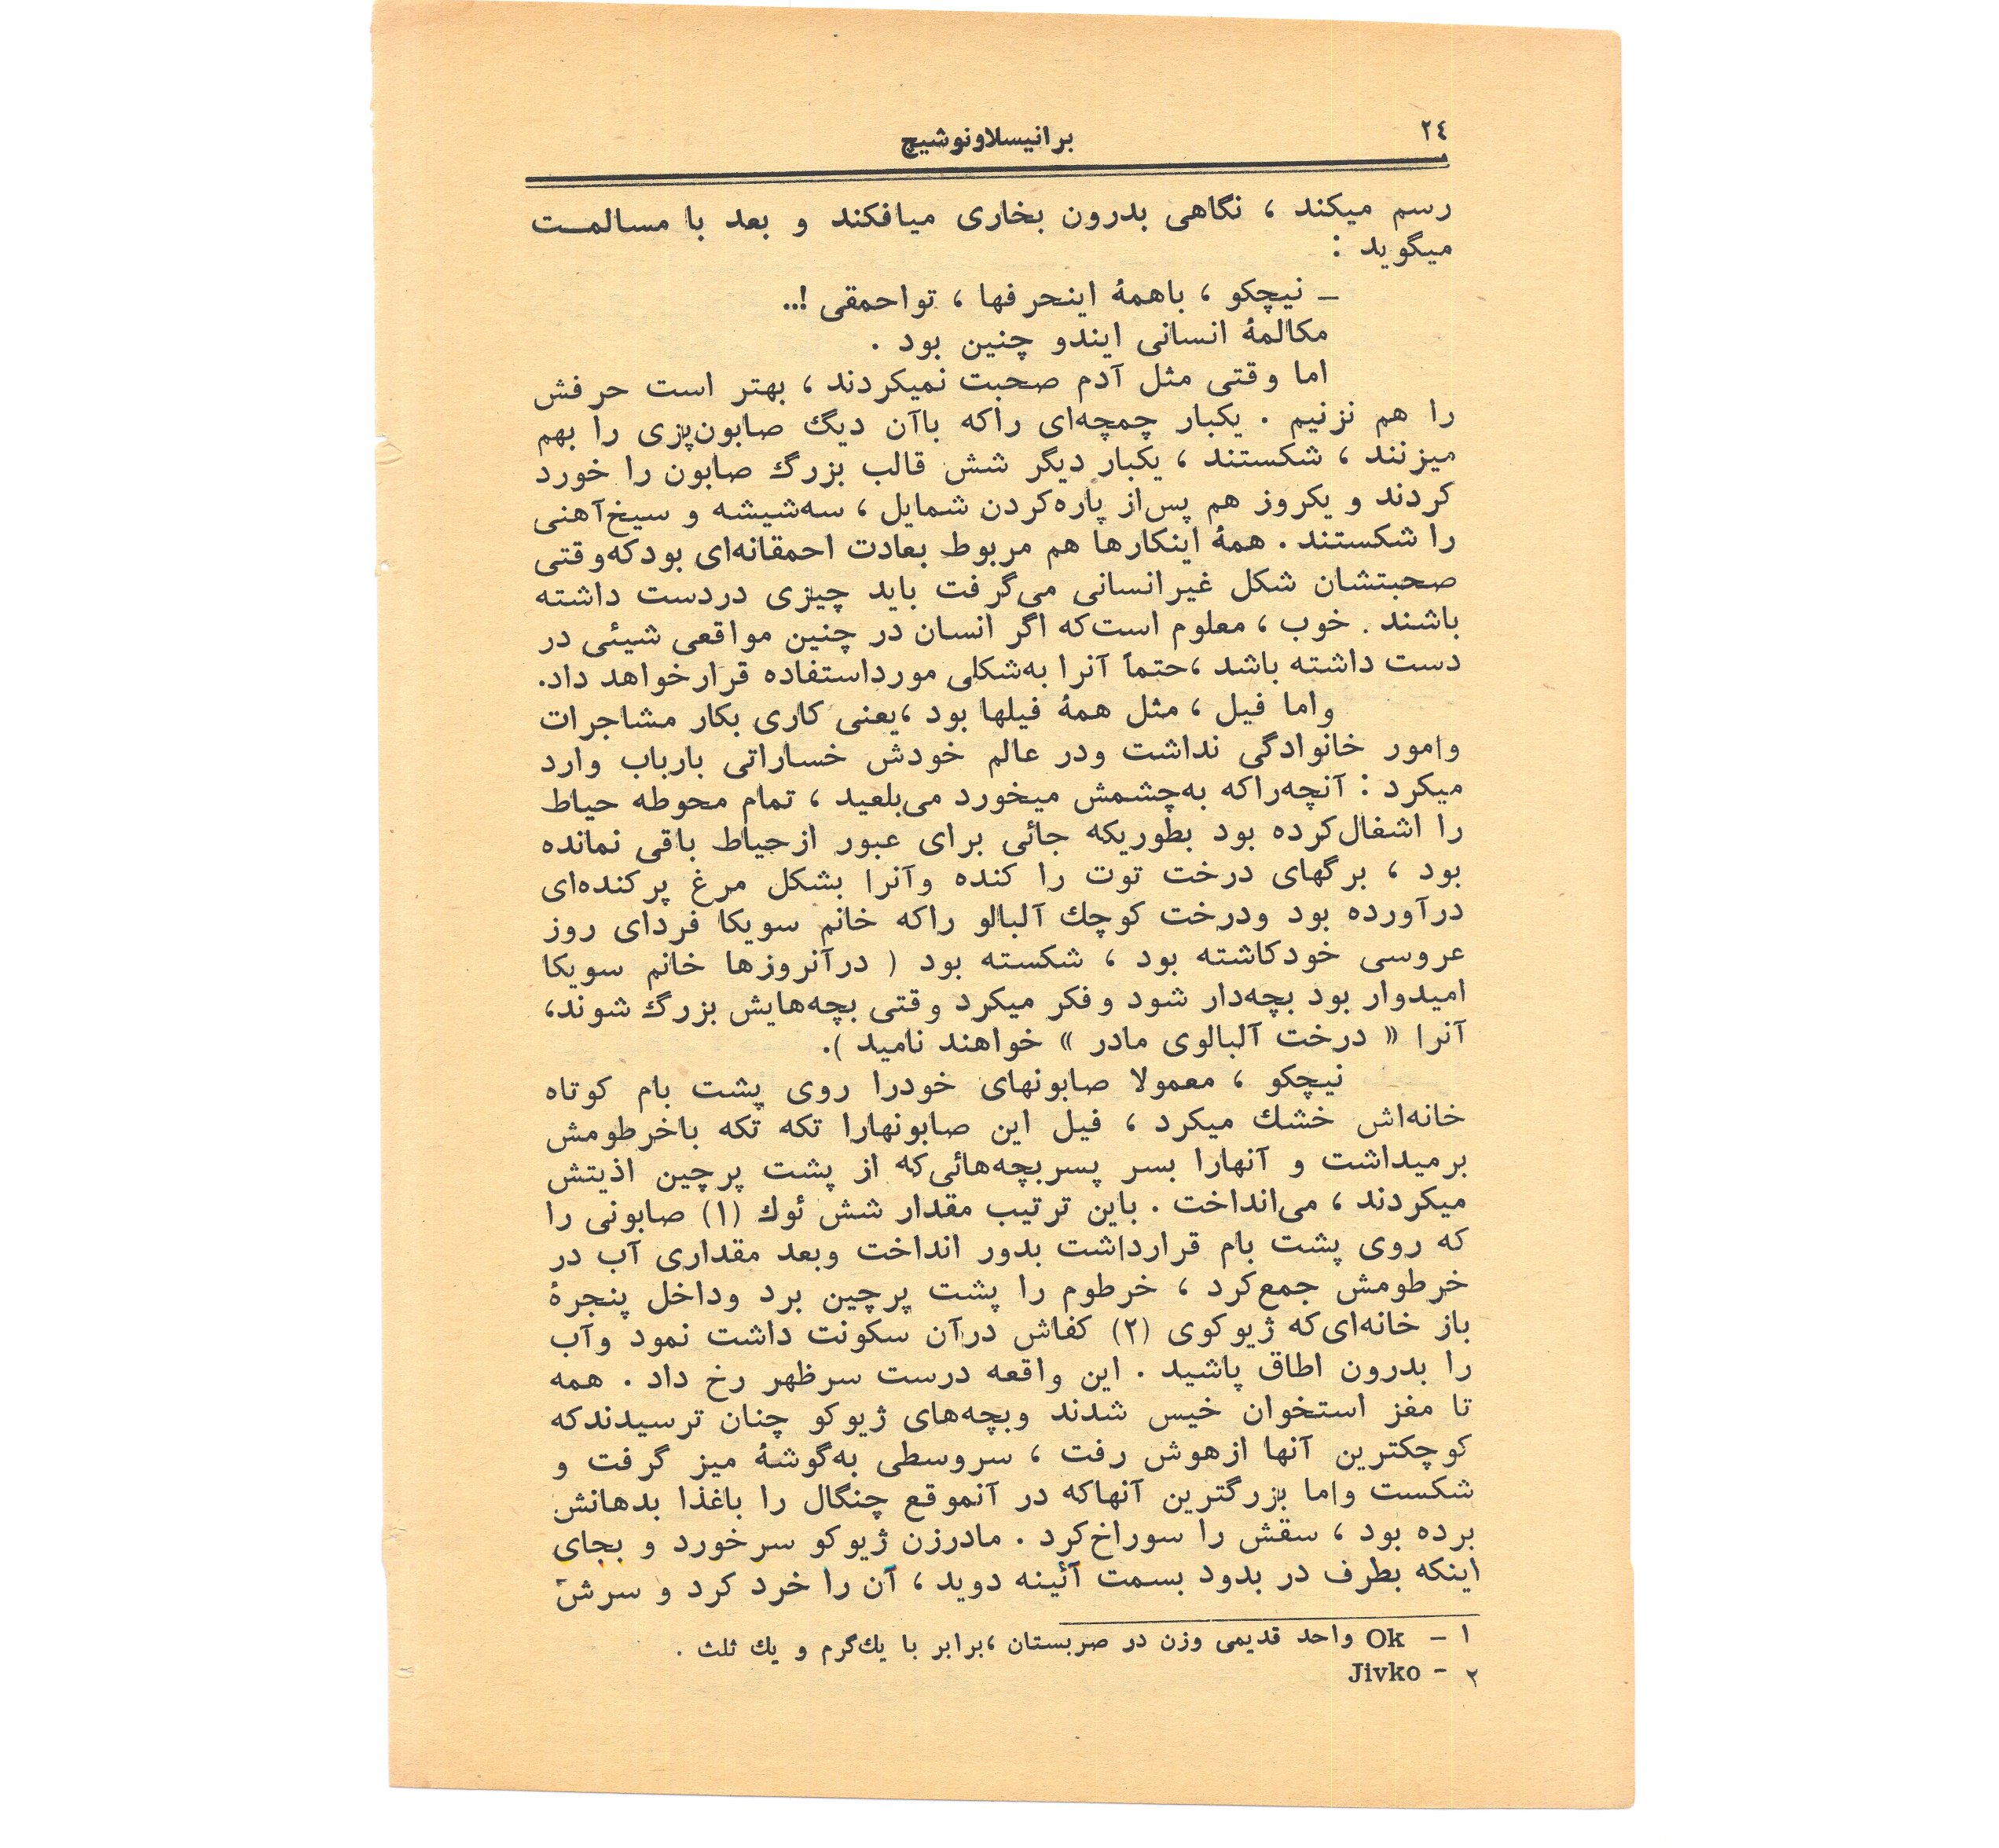 ۲٤
برانیسلاونوشیچ
رسم میکند ، نگاهی بدرون بخاری میافکند و بعد با مسالمت
میگوید :
ـ نیچکو ، باهمهٔ اینحرفها ، تواحمقی !..
مکالمهٔ انسانی ایندو چنین بود .
اما وقتی مثل آدم صحبت نمیکردند ، بهتر است حرفش
را هم نزنیم . یکبار چمچه‌ای راکه باآن دیگ صابون‌پزی را بهم
میزنند ، شکستند ، یکبار دیگر شش قالب بزرگ صابون را خورد
کردند و یکروز هم پس‌از پاره‌کردن شمایل ، سه‌شیشه و سیخ‌آهنی
را شکستند . همهٔ اینکارها هم مربوط بعادت احمقانه‌ای بودکه‌وقتی
صحبتشان شکل غیرانسانی می‌گرفت باید چیزی دردست داشته
باشند . خوب ، معلوم است‌که اگر انسان در چنین مواقعی شیئی در
دست داشته باشد ،حتماً آنرا به‌شکلی مورداستفاده قرارخواهد داد.
واما فیل ، مثل همهٔ فیلها بود ،یعنی کاری بکار مشاجرات
وامور خانوادگی نداشت ودر عالم خودش خساراتی بارباب وارد
میکرد : آنچه‌راکه به‌چشمش میخورد می‌بلعید ، تمام محوطه حیاط
را اشغال‌کرده بود بطوریکه جائی برای عبور ازحیاط باقی نمانده
بود ، برگهای درخت توت را کنده وآنرا بشکل مرغ پرکنده‌ای
درآورده بود ودرخت کوچك آلبالو راکه خانم سویکا فردای روز
عروسی خودکاشته بود ، شکسته بود ( درآنروزها خانم سویکا
امیدوار بود بچه‌دار شود وفکر میکرد وقتی بچه‌هایش بزرگ شوند،
آنرا « درخت آلبالوی مادر » خواهند نامید ).
نیچکو ، معمولا صابونهای خودرا روی پشت بام کوتاه
خانه‌اش خشك میکرد ، فیل این صابونهارا تکه تکه باخرطومش
برمیداشت و آنهارا بسر پسربچه‌هائی‌که از پشت پرچین اذیتش
میکردند ، می‌انداخت . باین ترتیب مقدار شش ئوك (۱) صابونی را
که روی پشت بام قرارداشت بدور انداخت وبعد مقداری آب در
خرطومش جمع‌کرد ، خرطوم را پشت پرچین برد وداخل پنجرهٔ
باز خانه‌ای‌که ژیوکوی (۲) کفاش درآن سکونت داشت نمود وآب
را بدرون اطاق پاشید . این واقعه درست سرظهر رخ داد . همه
تا مغز استخوان خیس شدند وبچه‌های ژیوکو چنان ترسیدندکه
کوچکترین آنها ازهوش رفت ، سروسطی به‌گوشهٔ میز گرفت و
شکست واما بزرگترین آنهاکه در آنموقع چنگال را باغذا بدهانش
برده بود ، سقش را سوراخ‌کرد . مادرزن ژیوکو سرخورد و بجای
اینکه بطرف در بدود بسمت آئینه دوید ، آن را خرد کرد و سرش
۱ ـ Ok واحد قدیمی وزن در صربستان ،برابر با یك‌گرم و یك ثلث .
۲ - Jivko